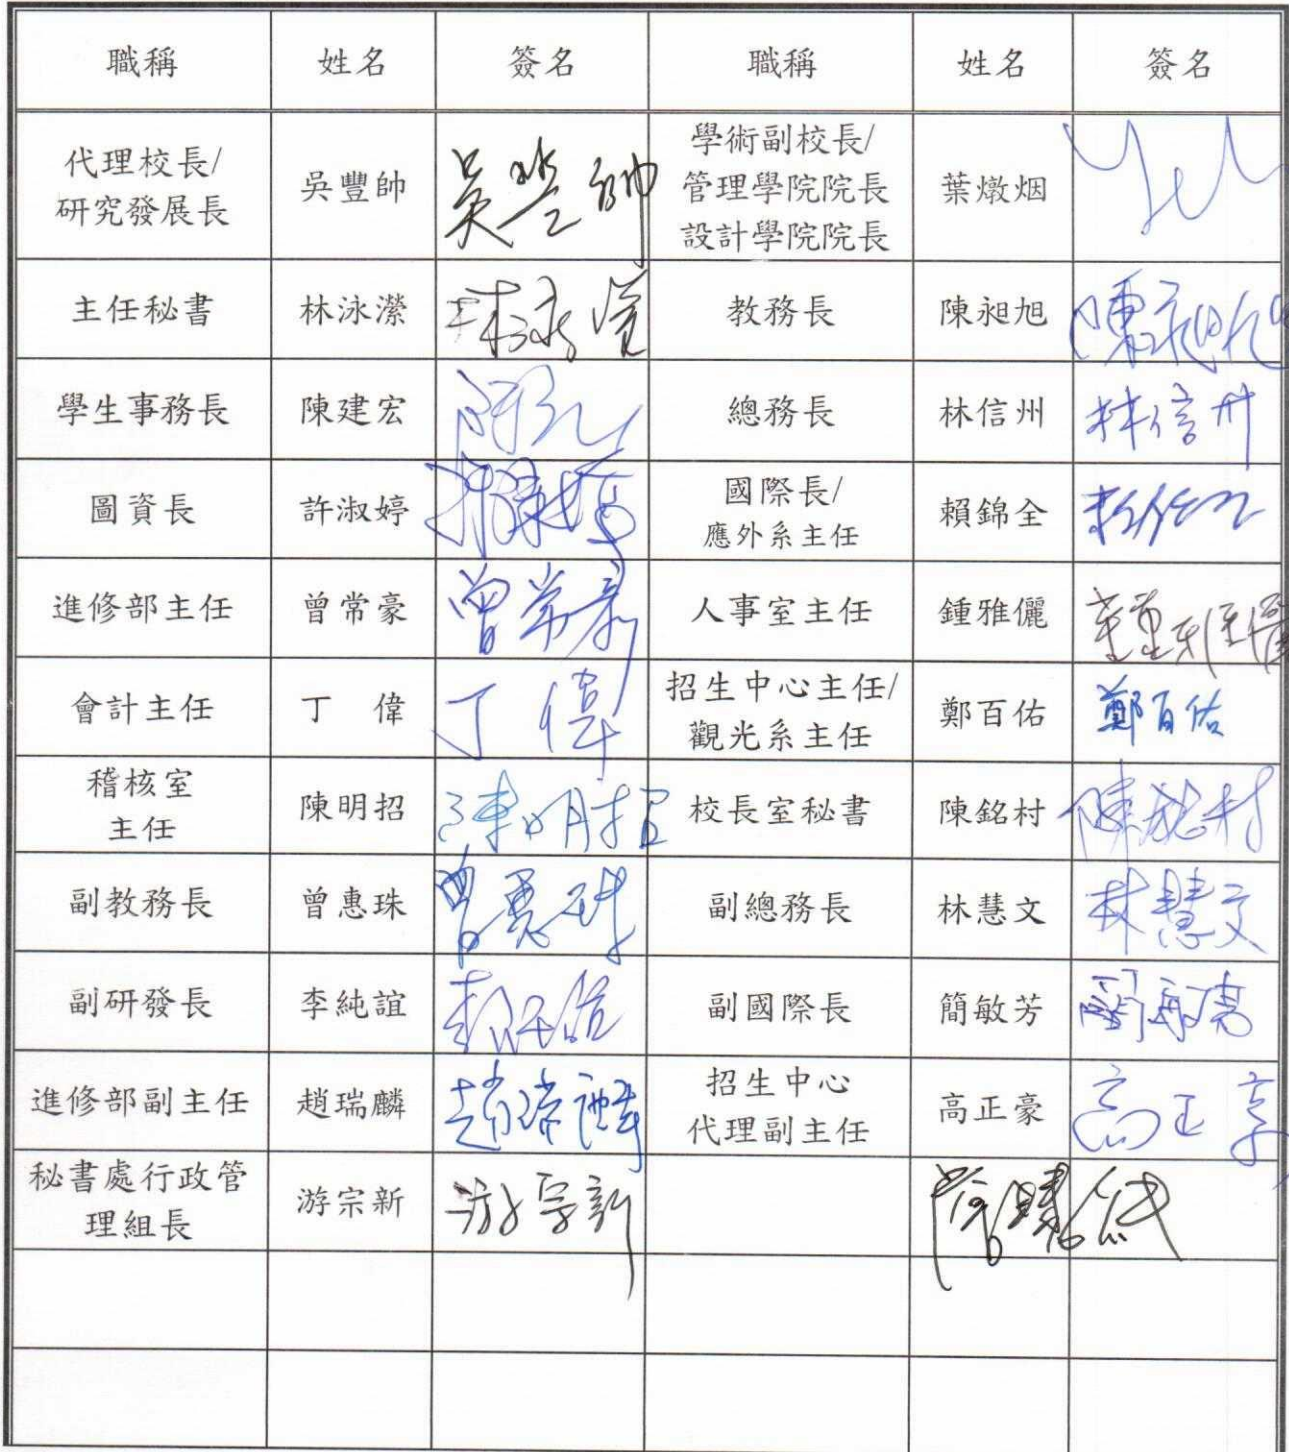 職稱 姓名 簽名 職稱 姓名 簽名
代理校長/
研究發展長 吳豐帥 吳豐帥
學術副校長/
管理學院院長
設計學院院長 葉燉烟
主任秘書 林泳瀠 教務長 陳昶旭 陳昶旭
學生事務長 陳建宏 總務長 林信州 林信州
圖資長 許淑婷
國際長/
應外系主任 賴錦全
進修部主任 曾常豪 曾常豪 人事室主任 鍾雅儷 鍾雅儷
會計主任 丁 偉 丁偉
招生中心主任/
觀光系主任 鄭百佑 鄭百佑
稽核室
主任 陳明招 陳明招 校長室秘書 陳銘村 陳銘村
副教務長 曾惠珠 曾惠珠 副總務長 林慧文 林慧文
副研發長 李純誼 副國際長 簡敏芳 簡敏芳
進修部副主任 趙瑞麟 趙瑞麟
招生中心
代理副主任 高正豪 高正豪
秘書處行政管
理組長 游宗新 游宗新